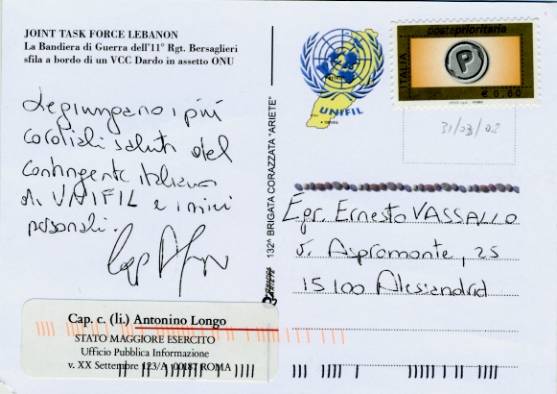 JOINT TASK FORCE LEBANON
La Bandiera di Guerra dell'11° Rgt. Bersaglieri
sfila a bordo di un VCC Dardo in assetto ONU
Le giungano i più
cordiali saluti del
Contingente italiano
di UNIFIL e i miei
personali.
Cap
Cap. c. (li.) Antonino Longo
STATO MAGGIORE ESERCITO
Ufficio Pubblica Informazione
v. XX Settembre 123/A 00187 ROMA
132ª BRIGATA CORAZZATA "ARIETE"
UNIFIL
posteprioritarie
ITALIA
P
€ 0,60
31/03/08
Egr. Ernesto VASSALLO
v. Aspromonte, 25
15100 Alessandria